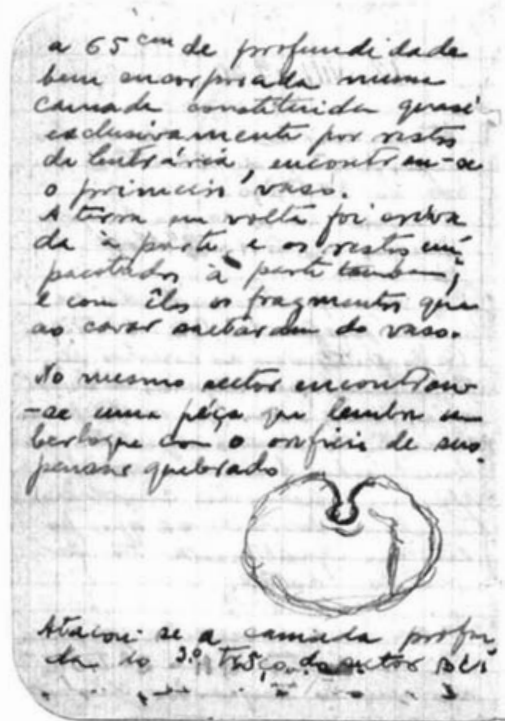 a 65 cm de profundidade
bem encorporada numa
camada constituida quasi
exclusivamente por restos
de lutrária, encontrou-se
o primeiro vaso.
A terra em volta foi criva
da à parte e os restos em
pacotados à parte tambem,
e com êles os fragmentos que
ao cavar saltaram do vaso.
No mesmo sector encontrou-
-se uma peça que lembra um
berloque com o orificio de sus
pensão quebrado
Atacou-se a camada profun
da do 3.º do sector